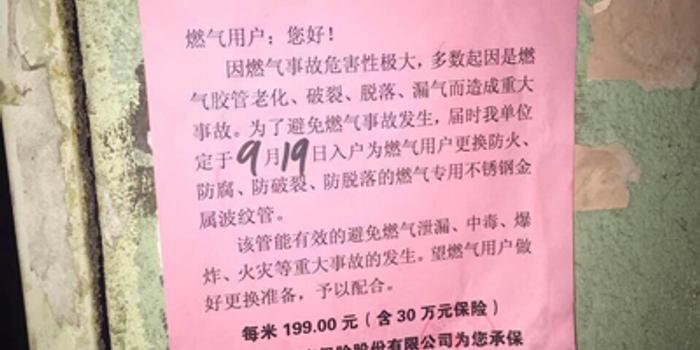 燃气用户：您好！
因燃气事故危害性极大，多数起因是燃
气胶管老化、破裂、脱落、漏气而造成重大
事故。为了避免燃气事故发生，届时我单位
定于9月19日入户为燃气用户更换防火、
防腐、防破裂、防脱落的燃气专用不锈钢金
属波纹管。
该管能有效的避免燃气泄漏、中毒、爆
炸、火灾等重大事故的发生。望燃气用户做
好更换准备，予以配合。
每米 199.00 元（含 30 万元保险）
保险股份有限公司为您承保